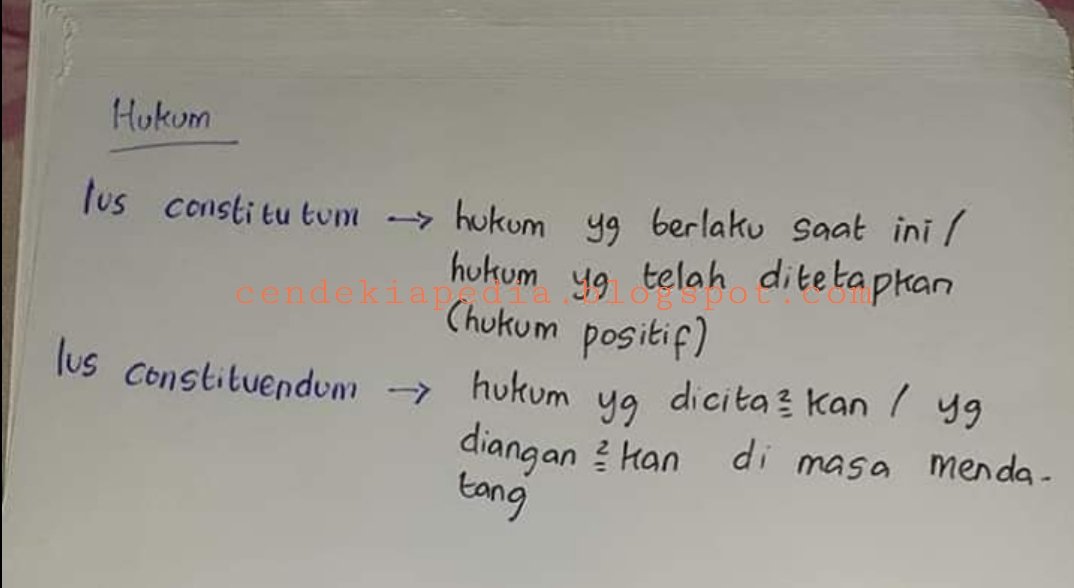 Hukum
Ius constitutum → hukum yg berlaku saat ini /
hukum yg telah ditetapkan
cendekiapedia.blogspot.com
(hukum positif)
Ius constituendum → hukum yg dicita²kan / yg
diangan²kan di masa menda-
tang